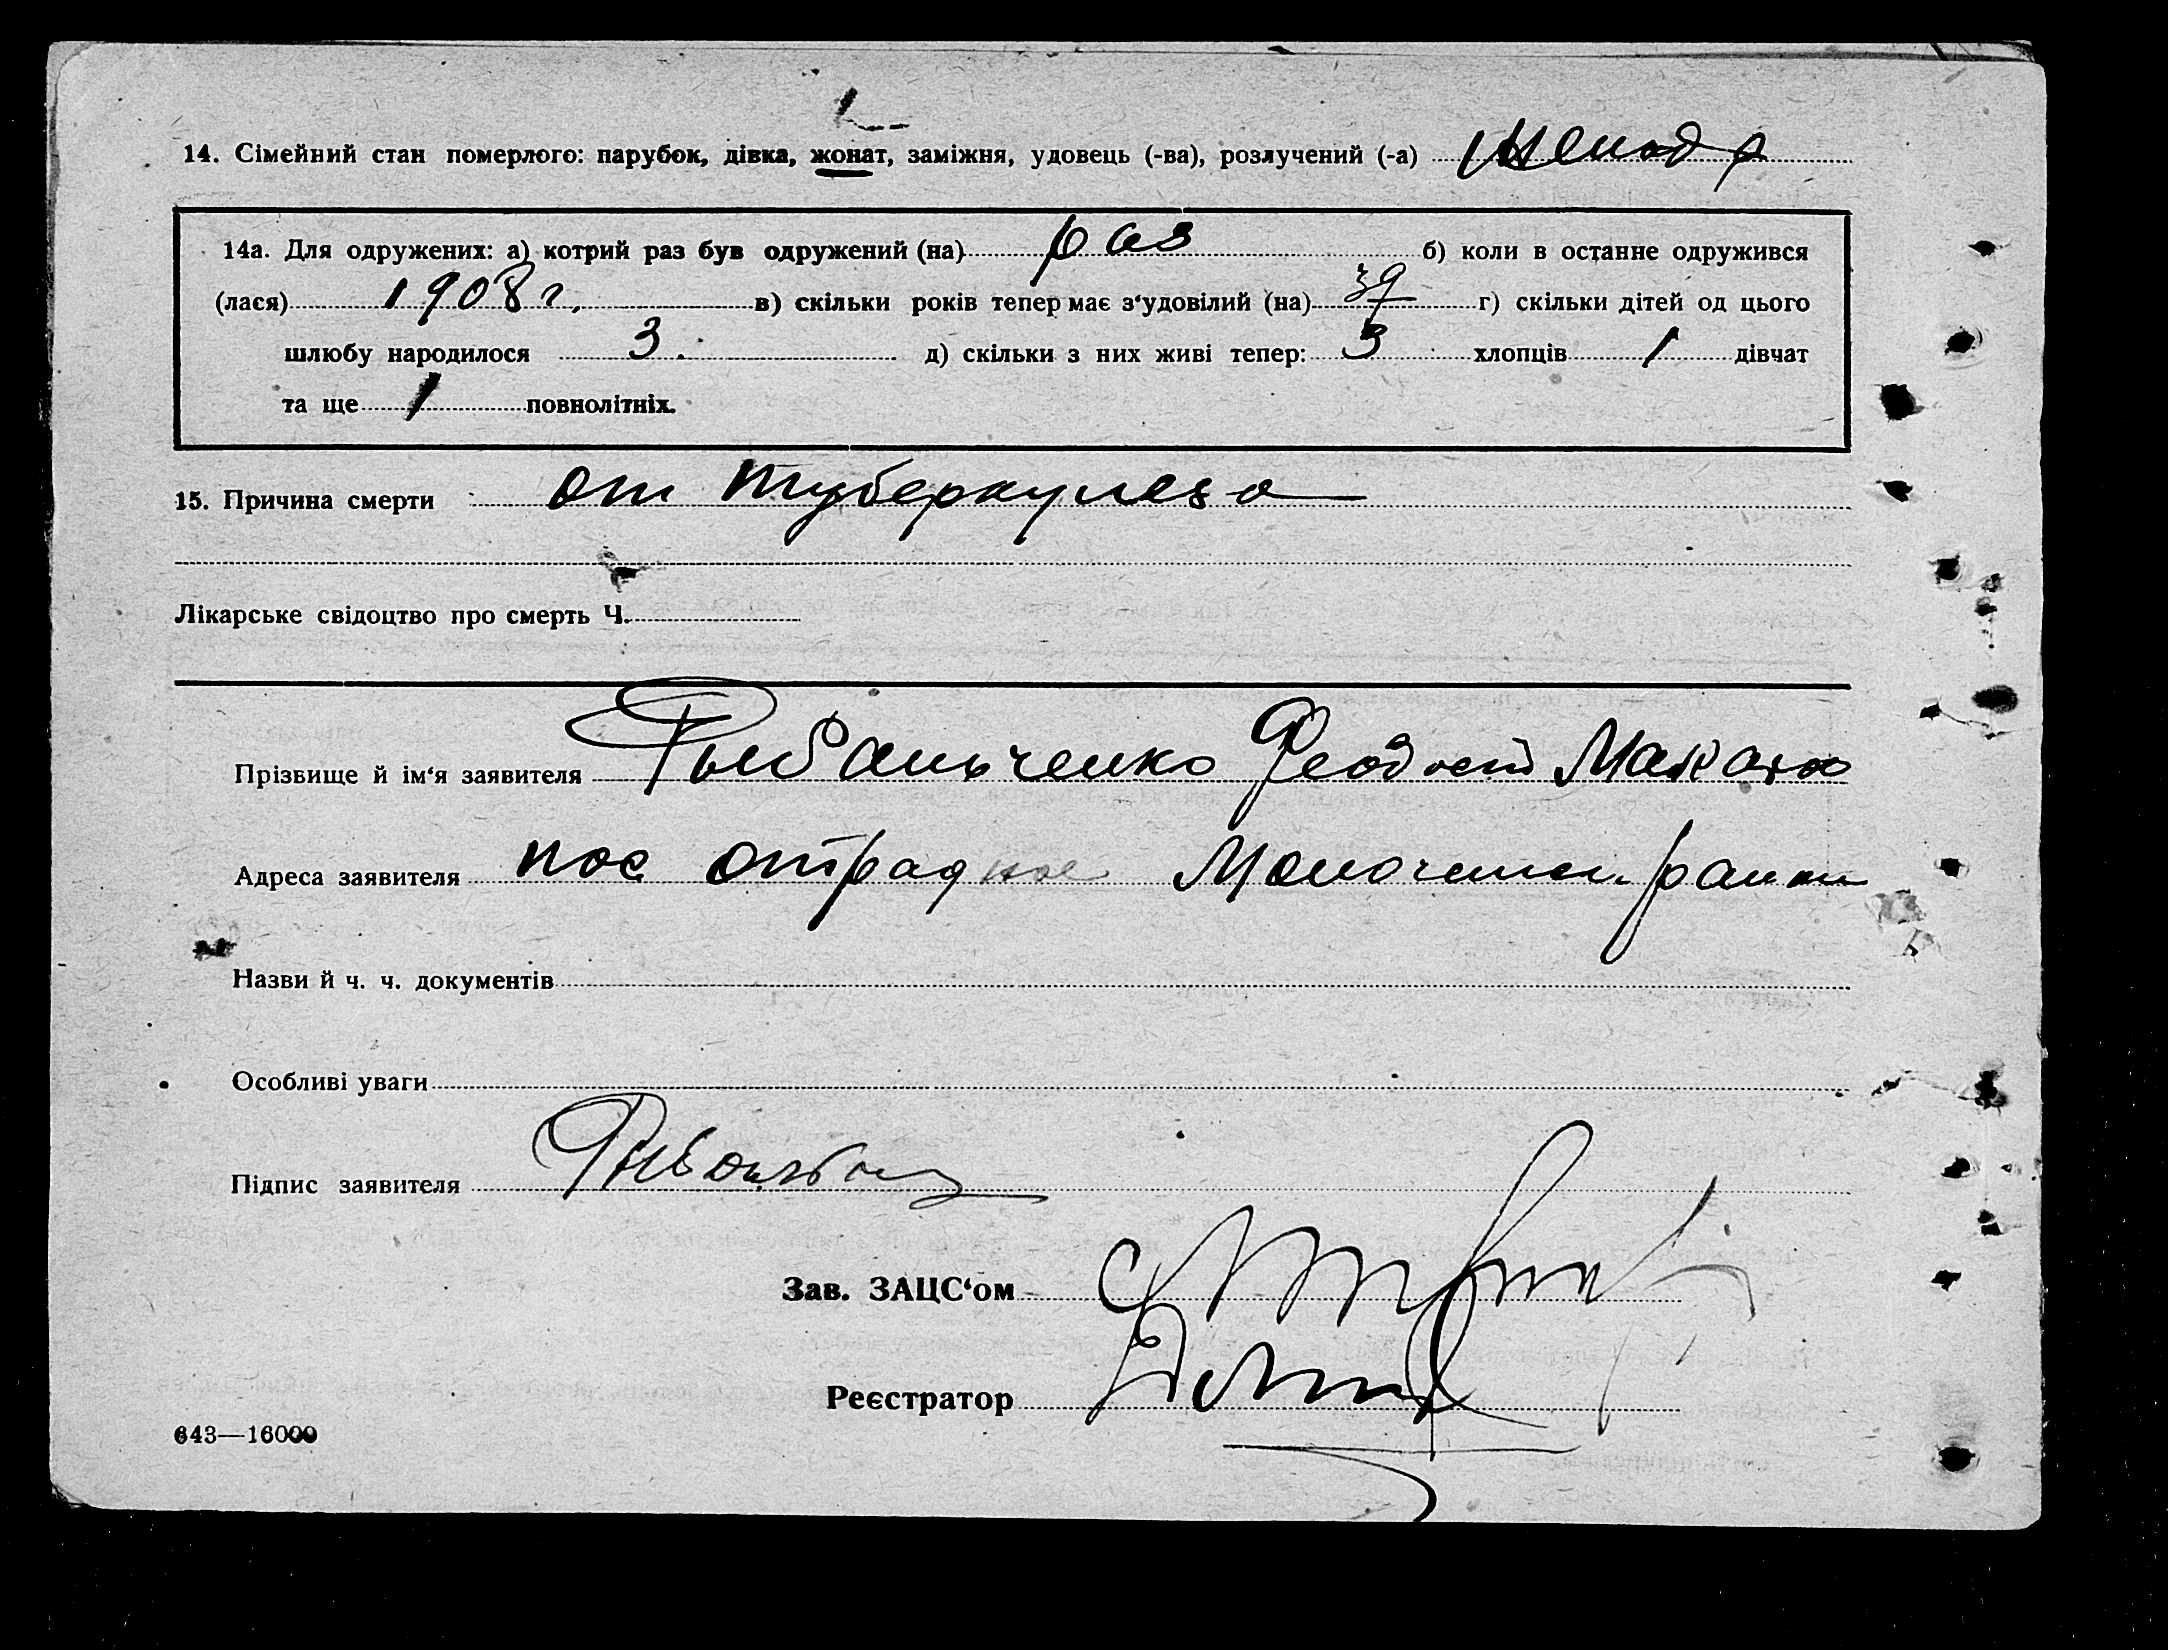 14. Сімейний стан померлого: парубок, дівка, жонат, заміжня, удовець (-ва), розлучений (-а)
14а. Для одружених: а) котрий раз був одружений (на) раз б) коли в останне одружився
(лася) 1908 г. в) скільки років тепер має з‘удовілий (на) 39 г) скільки дітей од цього
шлюбу народилося 3. д) скільки з них живі тепер: 3 хлопців 1 дівчат
та ще 1 повнолітніх.
15. Причина смерти от туберкулеза
Лікарське свідоцтво про смерть Ч.
Прізвище й ім‘я заявителя Рыбальченко Феодосий
Адреса заявителя пос Отрадное
Назви й ч. ч. документів
Особливі уваги
Підпис заявителя
Зав. ЗАЦС‘ом
Реєстратор
643—16000